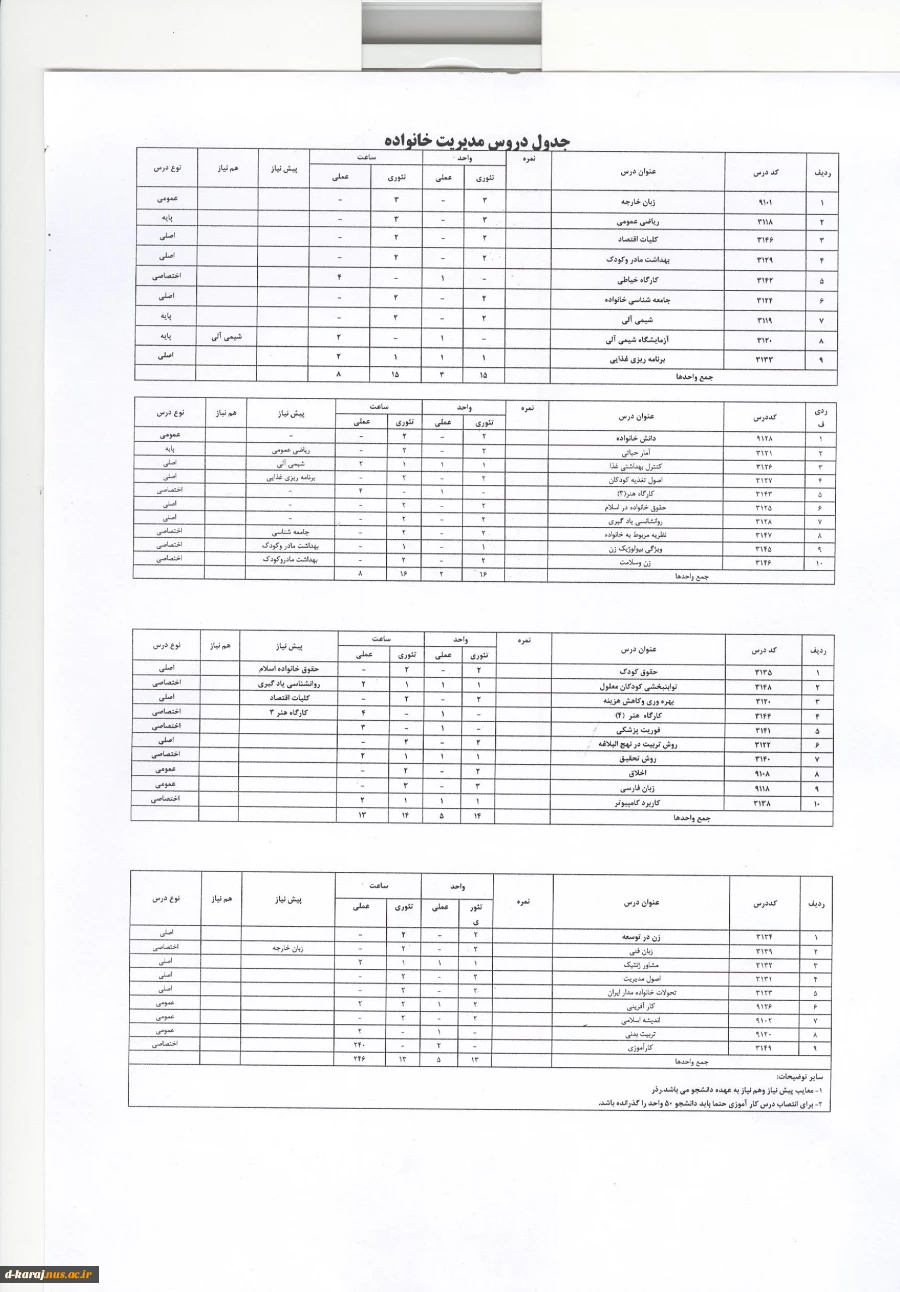 جدول دروس مدیریت خانواده
ردیف کد درس عنوان درس نمره واحد ساعت پیش نیاز هم نیاز نوع درس
تئوری عملی تئوری عملی
۱ ۹۱۰۱ زبان خارجه ۳ - ۳ - عمومی
۲ ۳۱۱۸ ریاضی عمومی ۳ - ۳ - پایه
۳ ۳۱۴۶ کلیات اقتصاد ۲ - ۲ - اصلی
۴ ۳۱۲۹ بهداشت مادر وکودک ۲ - ۲ - اصلی
۵ ۳۱۴۲ کارگاه خیاطی - ۱ - ۴ اختصاصی
۶ ۳۱۲۴ جامعه شناسی خانواده ۲ - ۲ - اصلی
۷ ۳۱۱۹ شیمی آلی ۲ - ۲ - پایه
۸ ۳۱۲۰ آزمایشگاه شیمی آلی - ۱ - ۲ شیمی آلی پایه
۹ ۳۱۳۳ برنامه ریزی غذایی ۱ ۱ ۱ ۲ اصلی
جمع واحدها ۱۵ ۳ ۱۵ ۸
ردی ف کددرس عنوان درس نمره واحد ساعت پیش نیاز هم نیاز نوع درس
تئوری عملی تئوری عملی
۱ ۹۱۲۸ دانش خانواده ۲ - ۲ - - عمومی
۲ ۳۱۲۱ آمار حیاتی ۲ - ۲ - ریاضی عمومی پایه
۳ ۳۱۲۶ کنترل بهداشتی غذا ۱ ۱ ۱ ۲ شیمی آلی اصلی
۴ ۳۱۲۷ اصول تغذیه کودکان ۲ - ۲ - برنامه ریزی غذایی اصلی
۵ ۳۱۴۳ کارگاه هنر(۳) - ۱ - ۴ - اختصاصی
۶ ۳۱۲۵ حقوق خانواده در اسلام ۲ - ۲ - - اصلی
۷ ۳۱۲۸ روانشناسی یاد گیری ۲ - ۲ - - اصلی
۸ ۳۱۴۷ نظریه مربوط به خانواده ۲ - ۲ - جامعه شناسی اختصاصی
۹ ۳۱۴۵ ویژگی بیولوژیک زن ۱ - ۱ - بهداشت مادر وکودک اختصاصی
۱۰ ۳۱۴۶ زن وسلامت ۲ - ۲ - بهداشت مادروکودک اختصاصی
جمع واحدها ۱۶ ۲ ۱۶ ۸
ردیف کد درس عنوان درس نمره واحد ساعت پیش نیاز هم نیاز نوع درس
تئوری عملی تئوری عملی
۱ ۳۱۳۵ حقوق کودک ۲ - ۲ - حقوق خانواده اسلام اصلی
۲ ۳۱۴۸ توانبخشی کودکان معلول ۱ ۱ ۱ ۲ روانشناسی یاد گیری اختصاصی
۳ ۳۱۳۰ بهره وری وکاهش هزینه ۲ - ۲ - کلیات اقتصاد اصلی
۴ ۳۱۴۴ کارگاه هنر (۴) - ۱ - ۴ کارگاه هنر ۳ اختصاصی
۵ ۳۱۴۱ فوریت پزشکی - ۱ - ۳ اختصاصی
۶ ۳۱۲۲ روش تربیت در نهج البلاغه ۲ - ۲ - اصلی
۷ ۳۱۴۰ روش تحقیق ۱ ۱ ۱ ۲ اختصاصی
۸ ۹۱۰۸ اخلاق ۲ - ۲ - عمومی
۹ ۹۱۱۸ زبان فارسی ۳ - ۳ - عمومی
۱۰ ۳۱۳۸ کاربرد کامپیوتر ۱ ۱ ۱ ۲ اختصاصی
جمع واحدها ۱۴ ۵ ۱۴ ۱۳
ردیف کددرس عنوان درس نمره واحد ساعت پیش نیاز هم نیاز نوع درس
تئور ی عملی تئوری عملی
۱ ۳۱۳۴ زن در توسعه ۲ - ۲ - اصلی
۲ ۳۱۳۹ زبان فنی ۲ - ۲ - زبان خارجه اختصاصی
۳ ۳۱۳۲ مشاور ژنتیک ۱ ۱ ۱ ۲ اصلی
۴ ۳۱۳۱ اصول مدیریت ۲ - ۲ - اصلی
۵ ۳۱۲۳ تحولات خانواده مدار ایران ۲ - ۲ - اصلی
۶ ۹۱۲۶ کار آفرینی ۲ ۱ ۲ ۲ عمومی
۷ ۹۱۰۲ اندیشه اسلامی ۲ - ۲ - عمومی
۸ ۹۱۲۰ تربیت بدنی - ۱ - ۲ عمومی
۹ ۳۱۴۹ کارآموزی - ۲ - ۲۴۰ اختصاصی
جمع واحدها ۱۳ ۵ ۱۳ ۲۴۶
سایر توضیحات:
۱- معایب پیش نیاز وهم نیاز به عهده دانشجو می باشد.رذر
۲- برای انتصاب درس کار آموزی حتما باید دانشجو ۵۰ واحد را گذرانده باشد.
d-karaj.nus.ac.ir